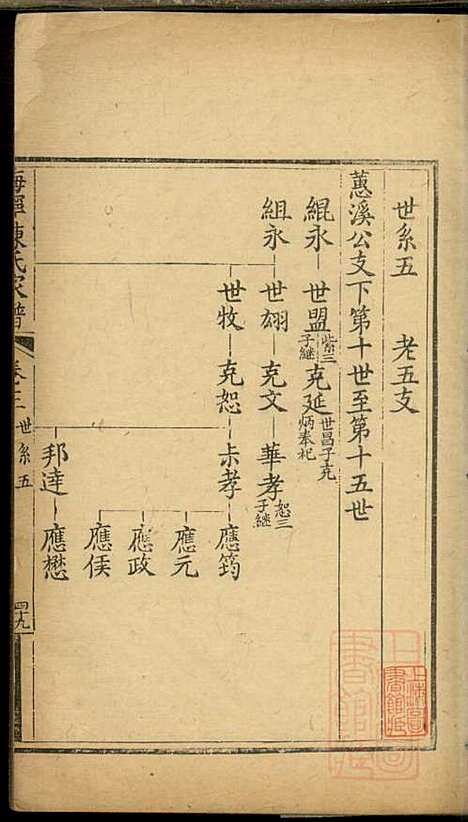 世系五　老五支
蕙溪公支下第十世至第十五世
緄永　世盟　紫三子繼　克延　世昌子克炳奉祀
組永　世翃　克文　華孝　恕三子繼
世牧　克恕　未孝　應筠
應元
應政
應侯
邦達　應懋
海寧陳氏家譜　卷三　世系五　四十九
上海圖書館藏